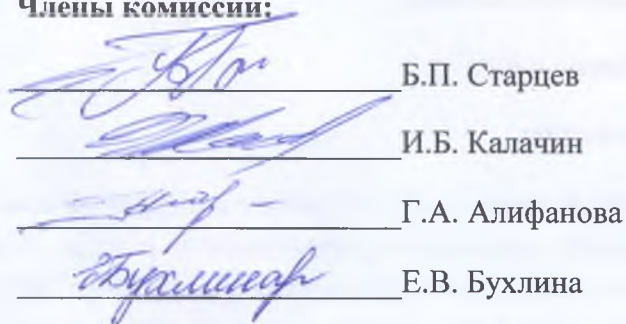 Члены комиссии:
Б.П. Старцев
И.Б. Калачин
Г.А. Алифанова
Е.В. Бухлина